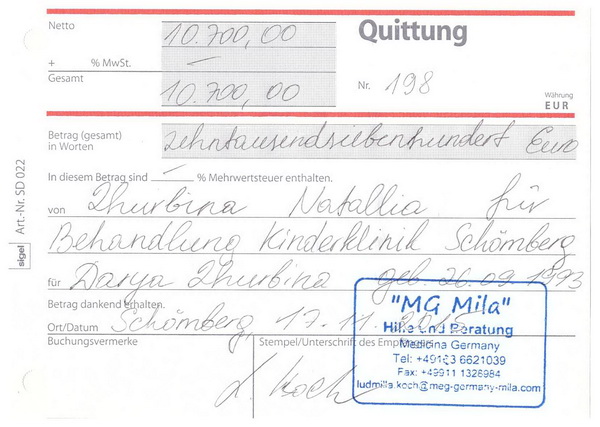 Netto 10.700,00
Quittung
+ % MwSt. —
Gesamt 10.700,00
Nr. 198
Währung
EUR
Betrag (gesamt)
in Worten
zehntausendsiebenhundert Euro
In diesem Betrag sind — % Mehrwertsteuer enthalten.
von Zhurbina Natallia für
Behandlung Kinderklinik Schömberg
für Darya Zhurbina geb. 26.09.1993
Betrag dankend erhalten.
Ort/Datum Schömberg, 17.11.
Buchungsvermerke
Stempel/Unterschrift des Empfängers
L. Koch
"MG Mila"
Hilfe und Beratung
Medizina Germany
Tel: +49163 6621039
Fax: +49911 1326984
ludmilla.koch@meg-germany-mila.com
sigel Art.-Nr. SD 022